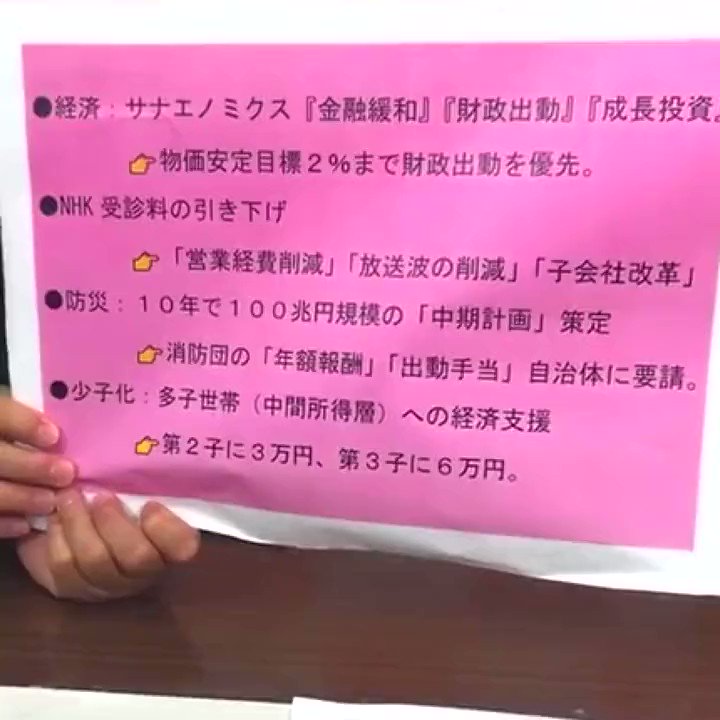 ●経済：サナエノミクス『金融緩和』『財政出動』『成長投資』
👉物価安定目標２％まで財政出動を優先。
●NHK 受診料の引き下げ
👉「営業経費削減」「放送波の削減」「子会社改革」
●防災：１０年で１００兆円規模の「中期計画」策定
👉消防団の「年額報酬」「出動手当」自治体に要請。
●少子化：多子世帯（中間所得層）への経済支援
👉第２子に３万円、第３子に６万円。